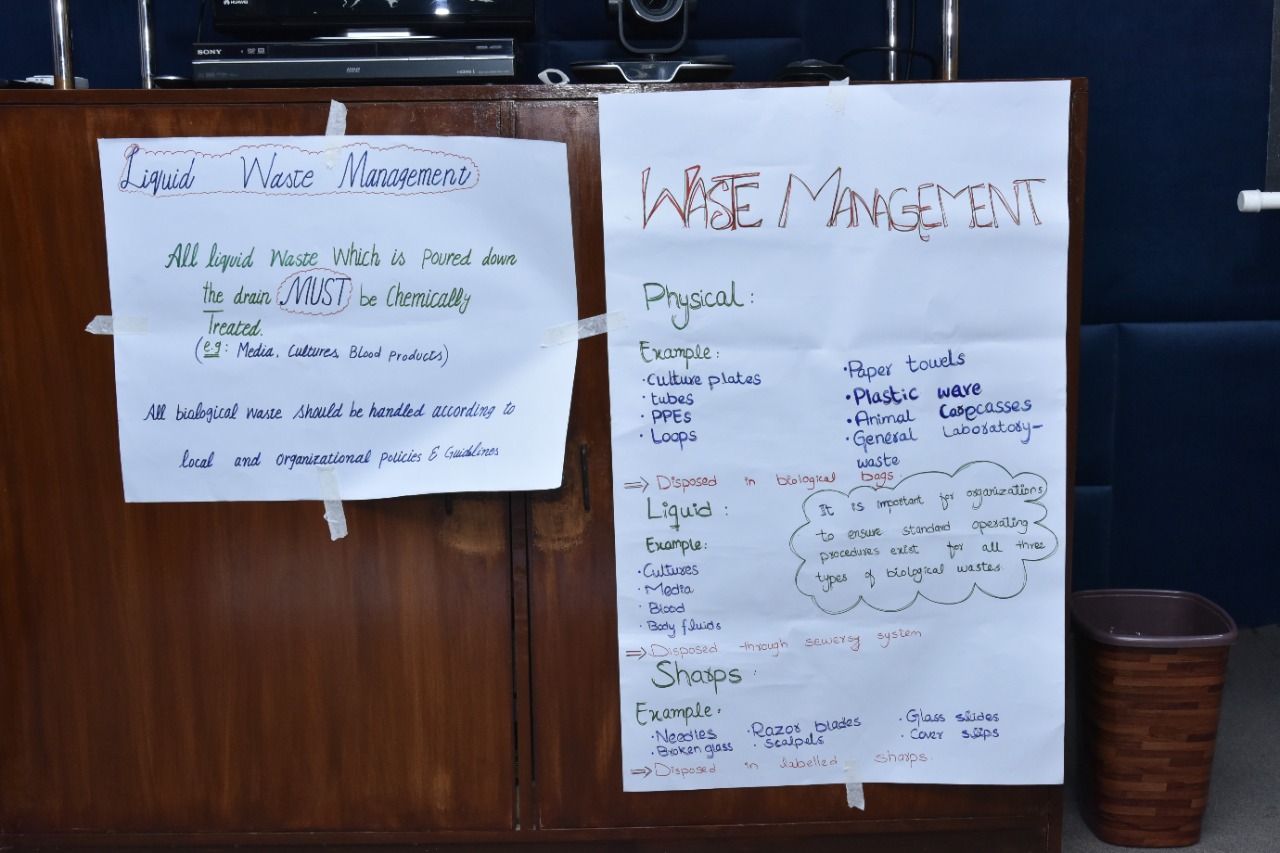 HUAWEI
SONY
HDMI
Liquid Waste Management
All liquid Waste Which is Poured down
the drain MUST be Chemically
Treated.
(e.g: Media, Cultures, Blood Products)
All biological waste should be handled according to
local and organizational Policies & Guidlines
WASTE MANAGEMENT
Physical:
Example:
·Culture plates
·tubes
·PPEs
·Loops
·Paper towels
·Plastic ware
·Animal Carcasses
·General Laboratory-
waste
⇒ Disposed in biological bags.
Liquid :
Example:
·Cultures
·Media
·Blood
·Body fluids
⇒ Disposed through sewersy system
It is important for organizations
to ensure standard operating
procedures exist for all three
types of biological wastes.
Sharps :
Example:
·Needles
·Broken glass
·Razor blades
·Scalpels
·Glass slides
·Cover slips
⇒ Disposed in labelled sharps.